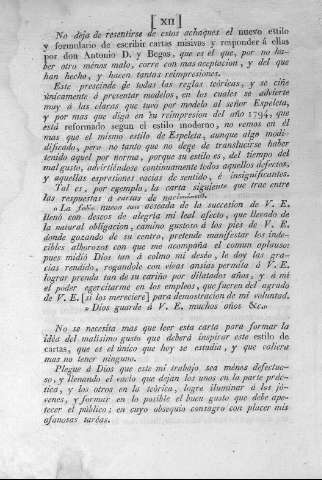 [ XII ]
No deja de resentirse de estos achaques el nuevo estilo
y formulario de escribir cartas misivas y responder á ellas
por don Antonio D. y Begas, que es el que, por no ha-
ber otro ménos malo, corre con mas aceptacion, y del que
han hecho, y hacen tantas reimpresiones.
Este prescinde de todas las reglas teóricas, y se ciñe
únicamente á presentar modelos, en los cuales se advierte
muy á las claras que tuvo por modelo al señor Espeleta,
y por mas que diga en su reimpresion del año 1794, que
está reformado segun el estilo moderno, no vemos en él
mas que el mismo estilo de Espeleta, aunque algo modi-
dificado, pero no tanto que no deje de translucirse haber
tenido aquel por norma, porque su estilo es, del tiempo del
mal gusto, advirtiéndose continuamente todos aquellos defectos,
y aquellas espresiones vacías de sentido, é insignificantes.
Tal es, por egemplo, la carta siguiente que trae entre
las respuestas á cartas de nacimiento.
»La feliz nueva con de la succesion de V. E.
llenó con deseos de alegria mi leal afecto, que llevado de
la natural obligacion, camino gustoso á los pies de V. E.
donde gozando de su centro, pretende manifestar los inde-
cibles alborozos con que me acompaña el comun aplauso:
pues midió Dios tan á colmo mi deseo, le doy las gra-
cias rendido, rogandole con vivas ansias permita á V. E.
lograr prenda tan de su cariño por dilatados años, y á mí
el poder egercitarme en los empleos, que fueren del agrado
de V. E. [si los mereciere] para demostracion de mi voluntad.
» Dios guarde á V. E. muchos años &c.»
No se necesita mas que leer esta carta para formar la
idea del malísimo gusto que deberá inspirar este estilo de
cartas, que es el único que hoy se estudia, y que coliera
mas no tener ninguno.
Plegue á Dios que este mi trabajo sea ménos defectuo-
so, y llenando el vacío que dejan los unos en la parte prác-
tica, y los otros en la teórica, logre iluminar á los jó-
venes, y formar en lo posible el buen gusto que debe ape-
tecer el público; en cuyo obsequio consagro con placer mis
afanosas tareas.